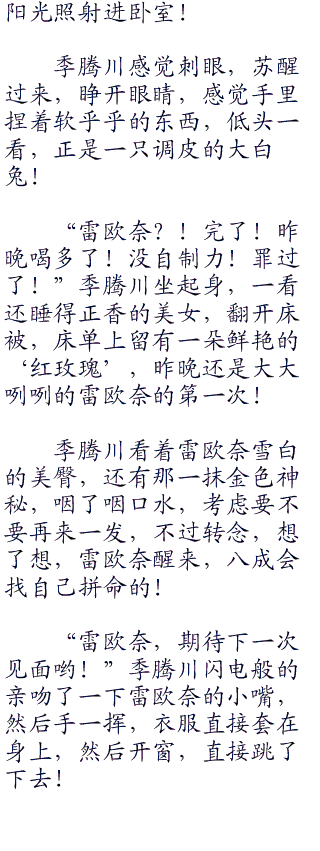 阳光照射进卧室！
季腾川感觉刺眼，苏醒
过来，睁开眼睛，感觉手里
捏着软乎乎的东西，低头一
看，正是一只调皮的大白
兔！
“雷欧奈？！完了！昨
晚喝多了！没自制力！罪过
了！”季腾川坐起身，一看
还睡得正香的美女，翻开床
被，床单上留有一朵鲜艳的
‘红玫瑰’，昨晚还是大大
咧咧的雷欧奈的第一次！
季腾川看着雷欧奈雪白
的美臀，还有那一抹金色神
秘，咽了咽口水，考虑要不
要再来一发，不过转念，想
了想，雷欧奈醒来，八成会
找自己拼命的！
“雷欧奈，期待下一次
见面哟！”季腾川闪电般的
亲吻了一下雷欧奈的小嘴，
然后手一挥，衣服直接套在
身上，然后开窗，直接跳了
下去！